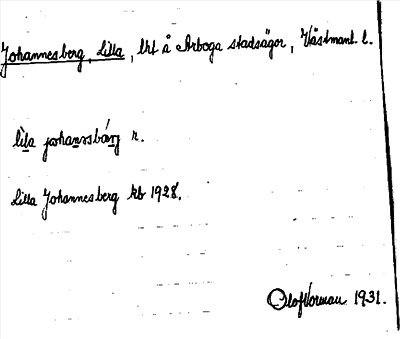 Johannesberg, Lilla, lht å Arboga stadsägor, Västmanl. l.
lila johanssbärj r.
Lilla Johannesberg kb 1928.
Olof Norman 1931.